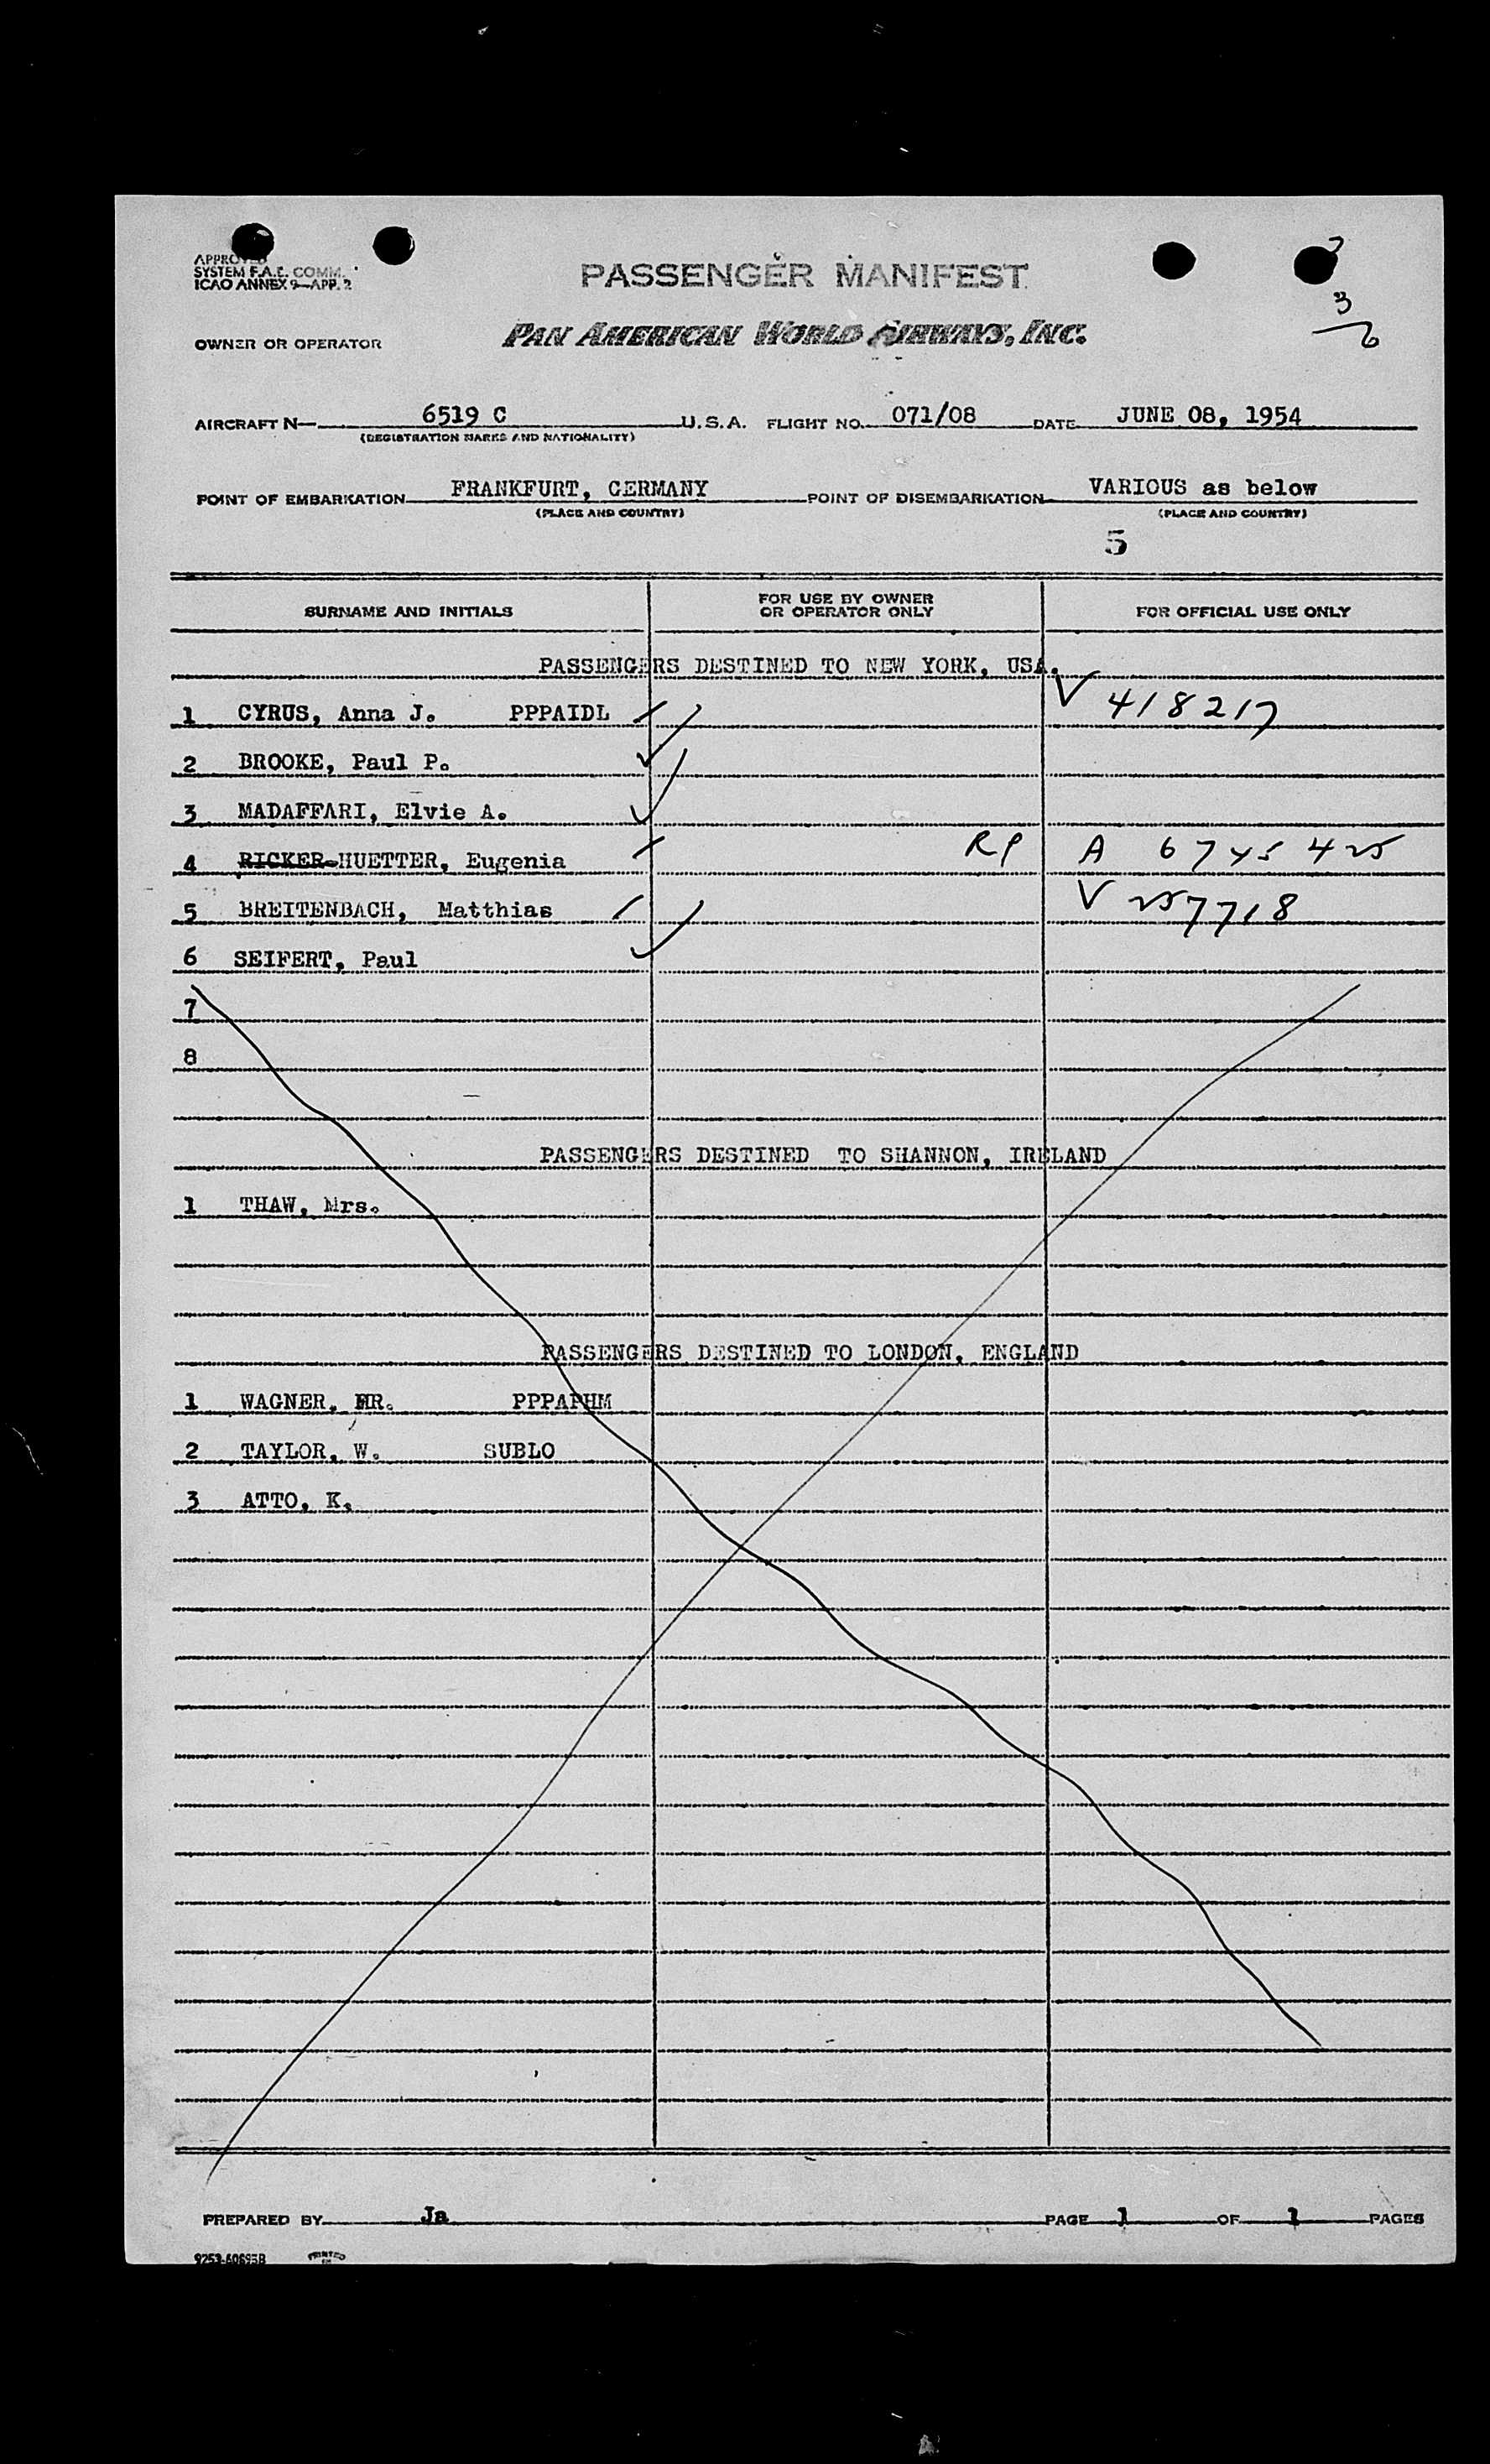 APPROVED
SYSTEM F.A.L. COMM.
ICAO ANNEX 9—APP. 2
PASSENGER MANIFEST
3
6
OWNER OR OPERATOR PAN AMERICAN WORLD AIRWAYS, INC.
AIRCRAFT N— 6519 C U.S.A. FLIGHT NO. 071/08 DATE JUNE 08, 1954
(REGISTRATION MARKS AND NATIONALITY)
POINT OF EMBARKATION FRANKFURT, GERMANY POINT OF DISEMBARKATION VARIOUS as below
(PLACE AND COUNTRY) (PLACE AND COUNTRY)
5
SURNAME AND INITIALS FOR USE BY OWNER OR OPERATOR ONLY FOR OFFICIAL USE ONLY
PASSENGERS DESTINED TO NEW YORK, USA.
1 CYRUS, Anna J. PPPAIDL V 418217
2 BROOKE, Paul P.
3 MADAFFARI, Elvie A.
4 RICKER-HUETTER, Eugenia RP A 6745425
5 BREITENBACH, Matthias V 257718
6 SEIFERT, Paul
7
8
PASSENGERS DESTINED TO SHANNON, IRELAND
1 THAW, Mrs.
PASSENGERS DESTINED TO LONDON, ENGLAND
1 WAGNER, MR. PPPAPHM
2 TAYLOR, W. SUBLO
3 ATTO, K.
PREPARED BY Ja PAGE 1 OF 1 PAGES